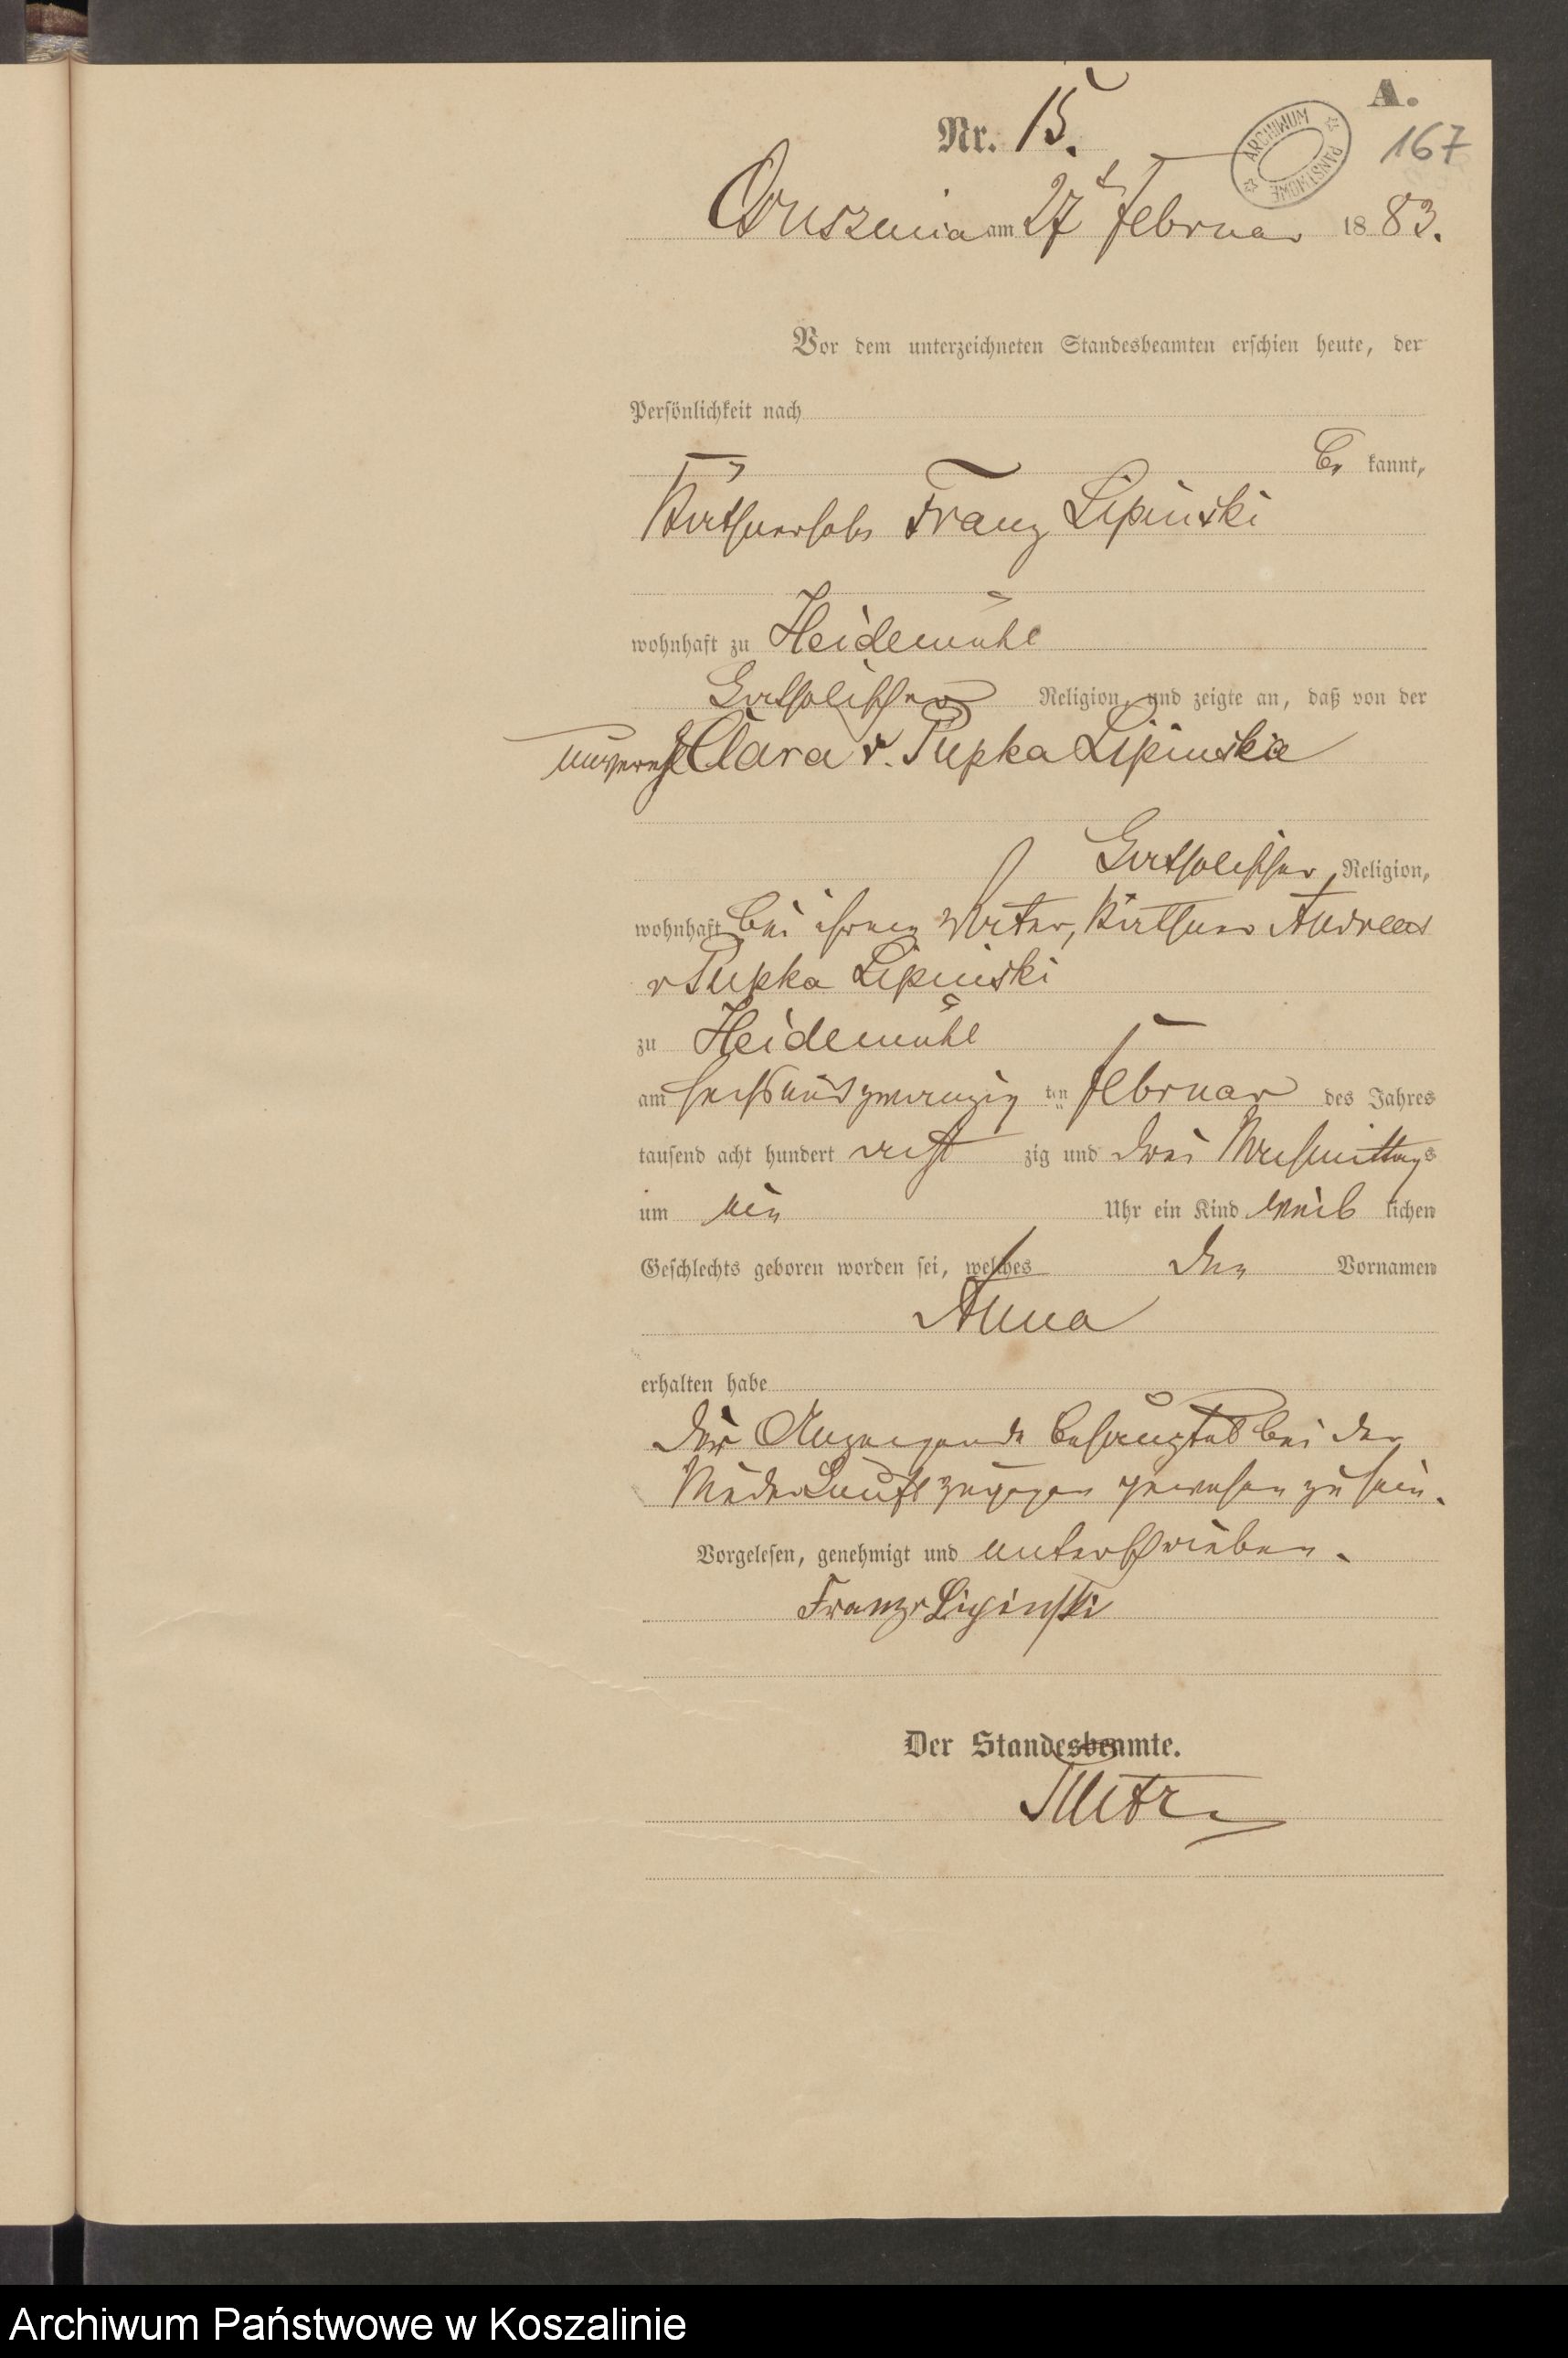 A.
Nr. 15.
ARCHIWUM PAŃSTWOWE
167
Oruszenia am 27t Februar 1883.
Vor dem unterzeichneten Standesbeamten erschien heute, der
Persönlichkeit nach
be kannt,
Franz Lipinski
wohnhaft zu Heidemühl
katholischer Religion, und zeigte an, daß von der
unverehl Clara v. Pupka Lipinska
katholischer Religion,
wohnhaft bei ihrem Vater, Käthner Andreas
v Pupka Lipinski
zu Heidemühl
am sechsundzwanzig ten Februar des Jahres
tausend acht hundert acht zig und drei Nachmittags
um ein Uhr ein Kind weib lichen
Geschlechts geboren worden sei, welches den Vornamen
Anna
erhalten habe
Der Anzeigende behauptet bei der
Niederkunft zugegen gewesen zu sein.
Vorgelesen, genehmigt und unterschrieben.
Franz Lipinski
Der Standesbeamte.
Archiwum Państwowe w Koszalinie